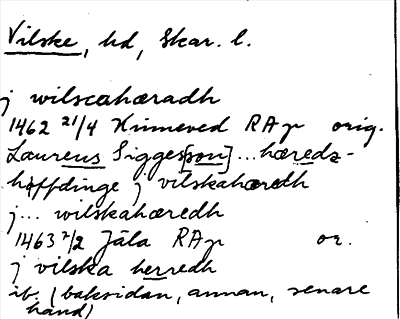 Vilske, hd, Skar. l.
j wilscahæradh
1462 21/4 Kinneved RAp orig.
Laurens Sigges[son] ... hæredz-
høffdinge j vilskahæredh
j... wilskahæredh
1463 7/2 Jäla RAp or.
j vilska herredh
ib. (baksidan, annan, senare
hand)